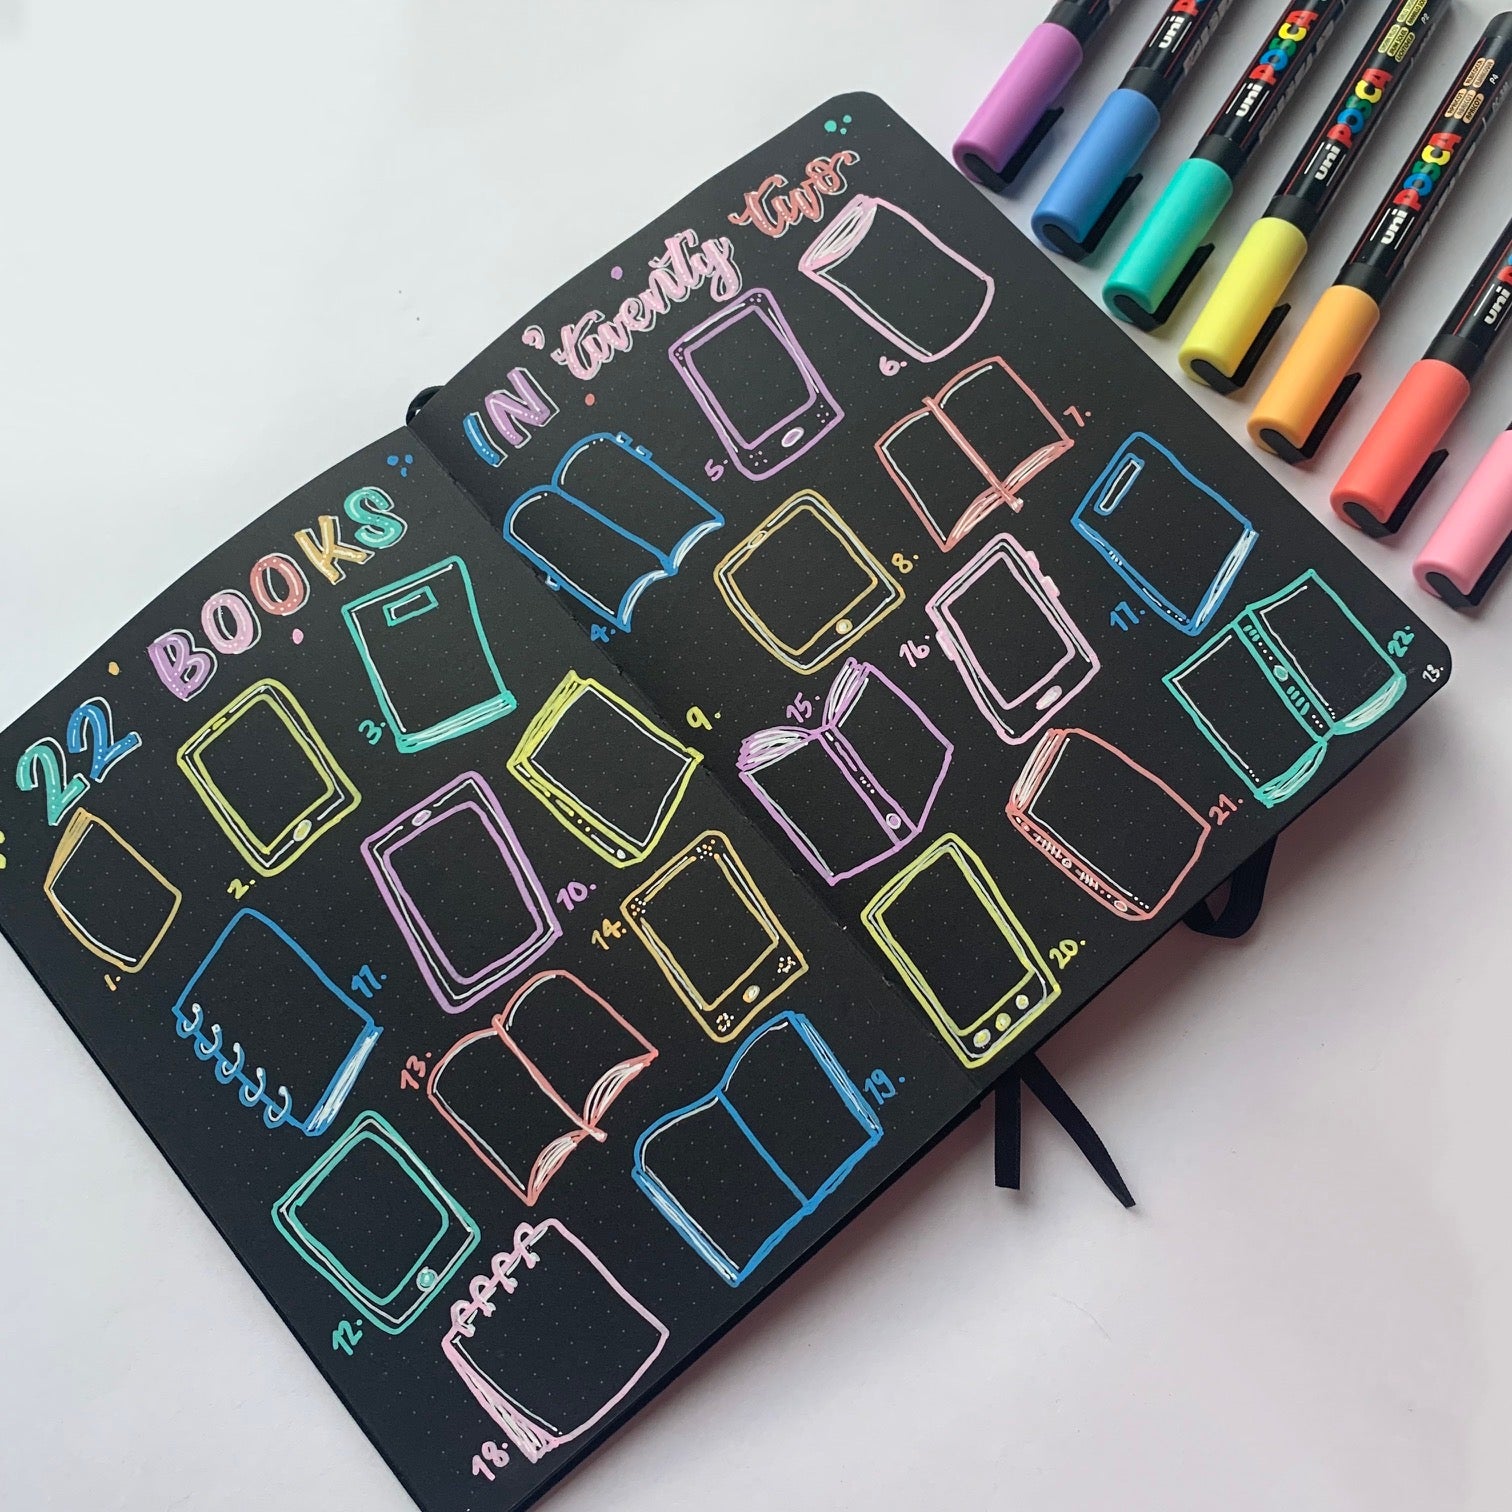 22 BOOKS
IN twenty two
1.
2.
3.
4.
5.
6.
7.
8.
9.
10.
11.
12.
13.
14.
15.
16.
17.
18.
19.
20.
21.
22.
23.
uni POSCA
uni POSCA
uni POSCA
uni POSCA
uni POSCA
uni